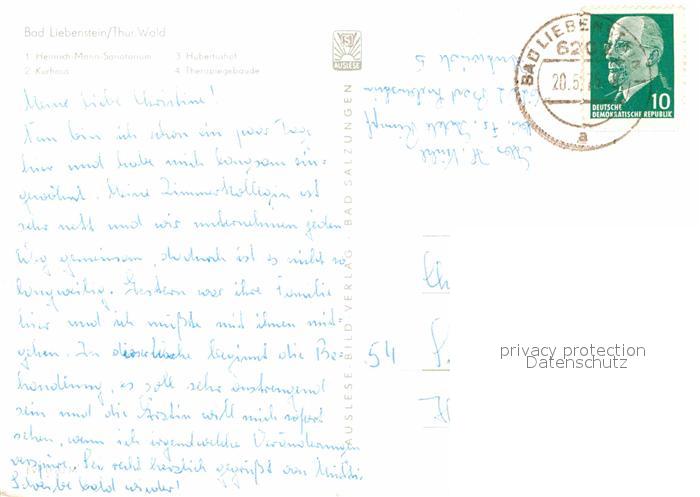 Bad Liebenstein/Thür. Wald
1 Heinrich-Mann-Sanatorium 3 Hubertushof
2 Kurhaus 4 Therapiegebäude
Meine liebe Christine!
Nun bin ich schon ein paar Tage
hier und habe mich langsam ein-
gewöhnt. Meine Zimmerkollegin ist
sehr nett und wir unternehmen jeden
Weg gemeinsam, dadurch ist es nicht so
langweilig. Gestern war ihre Familie
hier und ich mußte mit ihnen mit-
gehen. In dieser Woche beginnt die Be-
handlung, es soll sehr anstrengend
sein und die Ärztin will mich sofort
sehen, wenn ich irgendwelche Veränderungen
verspüre. Sei recht herzlich gegrüßt von
Schreibe bald wieder!
AUSLESE
AUSLESE BILD VERLAG BAD SALZUNGEN
Bad Liebenstein
54
BAD LIEBEN
620
20.5.
a
10
DEUTSCHE
DEMOKRATISCHE REPUBLIK
privacy protection
Datenschutz